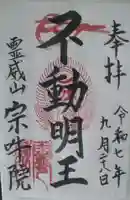 奉拝
令和七年
九月二十八日
不動明王
霊感山
宗吽院